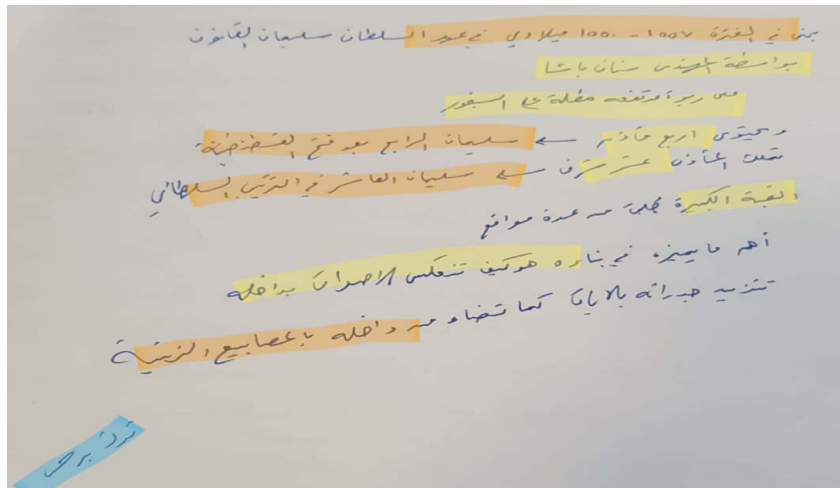 بني في الفترة ١٥٥٠ - ١٥٥٧ ميلادي في عهد السلطان سليمان القانون
بواسطة المهندس سنان باشا
على ربوة مرتفعه مطلة على البسفور
ويحتوى اربع مآذن ← سليمان الرابع بعد فتح القسطنطينية
تملك المآذن عشر شرف ← سليمان العاشر في الترتيب السلطاني
القبة الكبيرة من عدة مواقع
أهم ما يميزه في بناءه هو كيف تنعكس الاصوات بداخله
تتزيد جدرانه بالايات كما تضاء من داخله بالمصابيح الزيتية